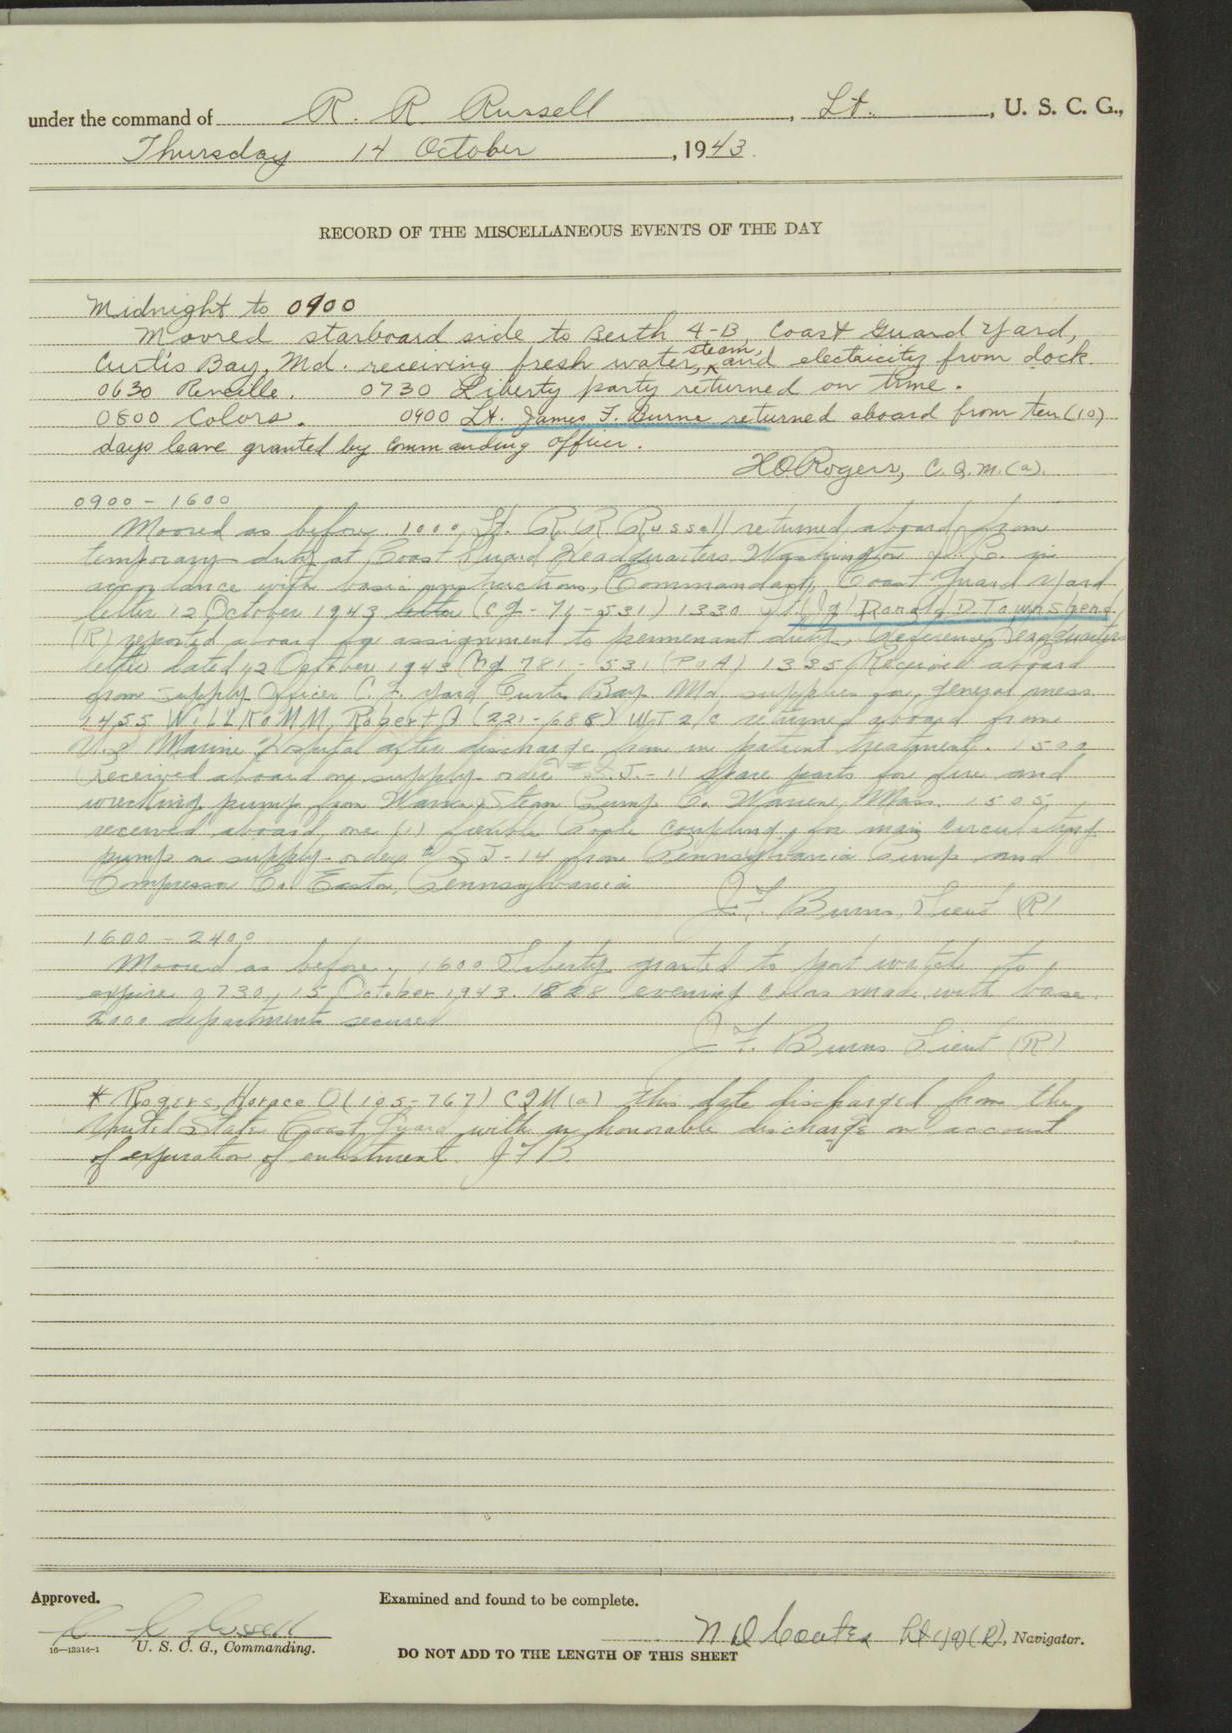 under the command of R. R. Russell, Lt., U. S. C. G.,
Thursday 14 October, 1943.
RECORD OF THE MISCELLANEOUS EVENTS OF THE DAY
Midnight to 0900
Moored starboard side to Berth 4-B, Coast Guard Yard,
Curtis Bay, Md. receiving fresh water, steam, and electricity from dock.
0630 Reveille. 0730 Liberty party returned on time.
0800 Colors. 0900 Lt. James F. Burns returned aboard from ten (10)
days leave granted by commanding officer.
H O Rogers, C.Q.M.(a).
0900 - 1600
Moored as before. 1000 Lt. R. R. Russell returned aboard from
temporary duty at Coast Guard Headquarters Washington D.C. in
accordance with basic instructions, Commandant, Coast Guard Yard
letter 12 October 1943 letter (Cg-74-531) 1330 Lt (jg) Donald D. Townshend
(R) reported aboard for assignment to permenant duty, reference Headquarters
letter dated 12 October 1943 781-531 (POA) 1335 Received aboard
from Supply Officer C. G. Yard Curtis Bay Md. supplies for general mess.
1455 WILLKOMM, Robert J (221-688) WT 2/c returned aboard from
U.S. Marine Hospital after discharge from in patient treatment. 1500
Received aboard on supply order # S.J.-11 spare parts for fire and
wrecking pump from Warren Steam Pump Co. Warren, Mass. 1505
received aboard, one (1) flexible coupling for main circulating
pump on supply order # SJ-14 from Pennsylvania Pump and
Compressor Co. Easton, Pennsylvania
J. F. Burns, Lieut (R)
1600 - 2400
Moored as before, 1600 Liberty granted to port watch to
expire 0730, 15 October 1943. 1828 evening colors made with base.
2000 departments secured
J F. Burns Lieut (R)
* Rogers, Horace O (105-767) CQM(a) this date discharged from the
United States Coast Guard with an honorable discharge on account
of expiration of enlistment. J F B.
Approved.
Examined and found to be complete.
U. S. C. G., Commanding.
16—13314-1
N D Coates Lt(jg)(R), Navigator.
DO NOT ADD TO THE LENGTH OF THIS SHEET